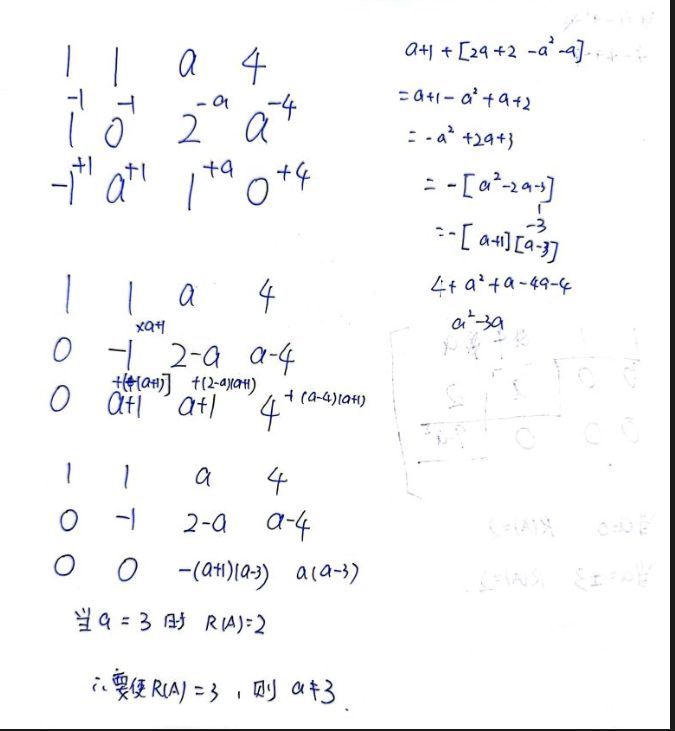 1 1 a 4
1⁻¹ 0⁻¹ 2⁻ᵃ a⁻⁴
-1⁺¹ a⁺¹ 1⁺ᵃ 0⁺⁴
1 1 a 4
×a+1
0 -1 2-a a-4
+(2-a)(a+1)
0 a+1 a+1 4+(a-4)(a+1)
1 1 a 4
0 -1 2-a a-4
0 0 -(a+1)(a-3) a(a-3)
当a=3时 R(A)=2
∴要使R(A)=3,则a≠3.
a+1+[2a+2-a²-a]
=a+1-a²+a+2
=-a²+2a+3
=-[a²-2a-3]
1
-3
=-[a+1][a-3]
4+a²+a-4a-4
a²-3a